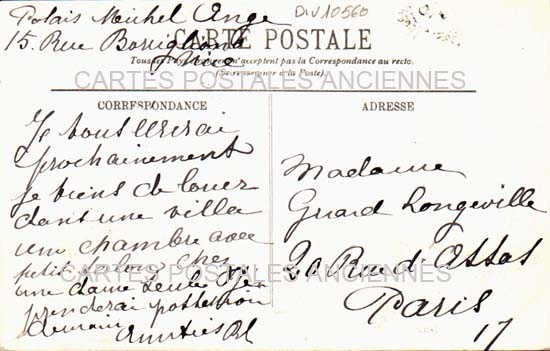 Palais Michel Ange
DIV10560
15. Rue
Nice
CARTE POSTALE
Tous les Pays étrangers n'acceptent pas la Correspondance au recto.
(Se renseigner à la Poste)
CARTES POSTALES ANCIENNES
CORRESPONDANCE
ADRESSE
Je vous écrirai
prochainement
je viens de louer
dans une villa
une chambre avec
petit salon, chez
une dame seule
prenderai possession
demain
Amitiés
CARTES POSTALES ANCIENNES
Madame
Guard Longeville
20 Rue d'Assas
Paris
17